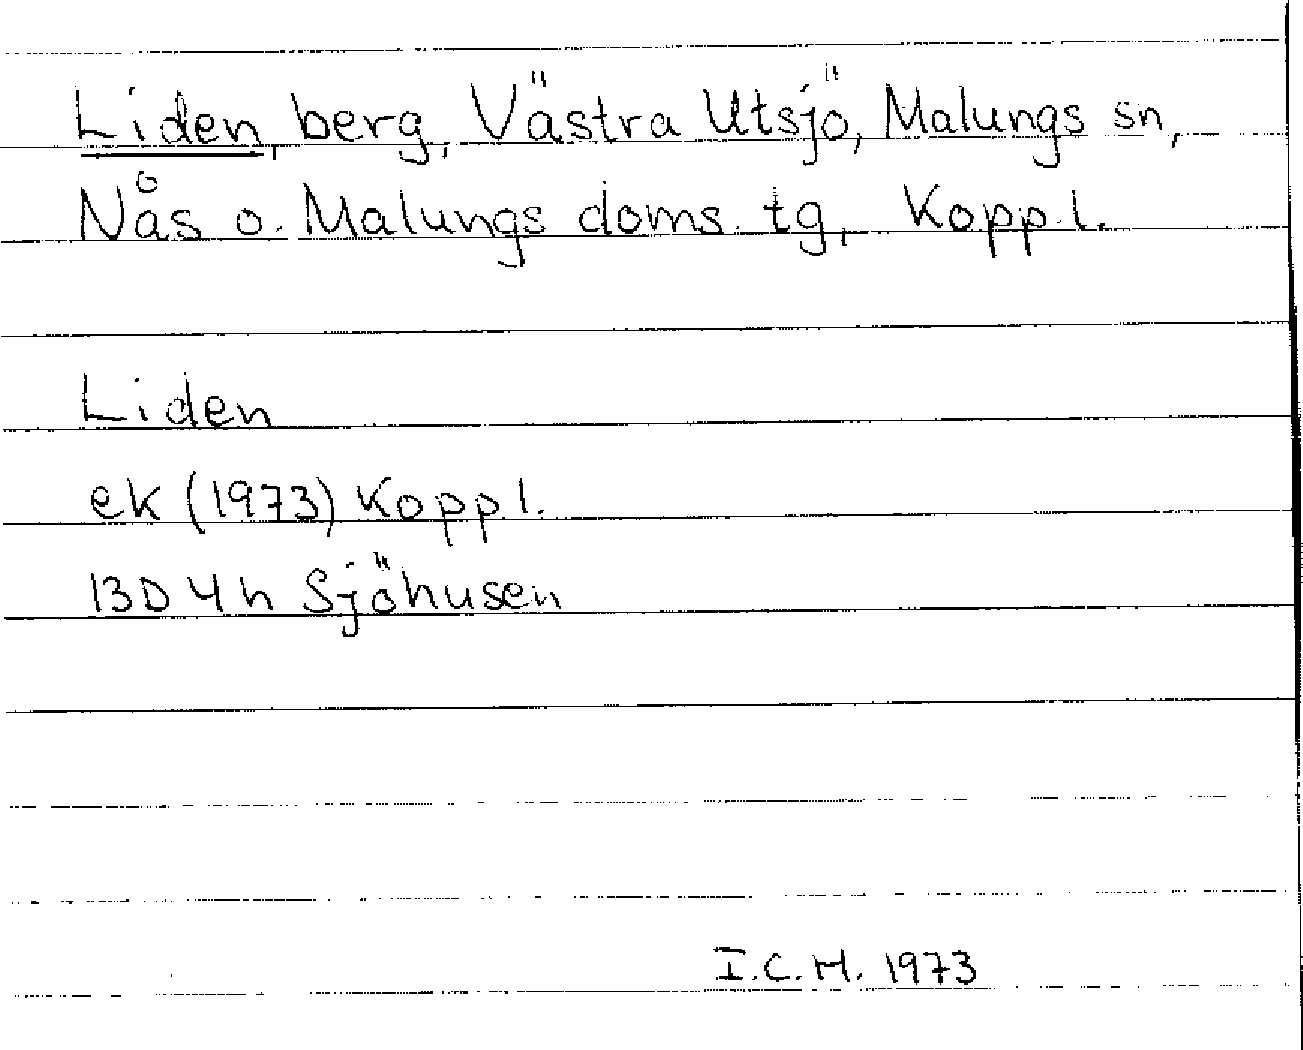 Liden, berg, Västra Utsjö, Malungs sn,
Nås o. Malungs doms. tg, Kopp.l.
Liden
ek (1973) Kopp l.
13D 4h Sjöhusen
I.C.M. 1973